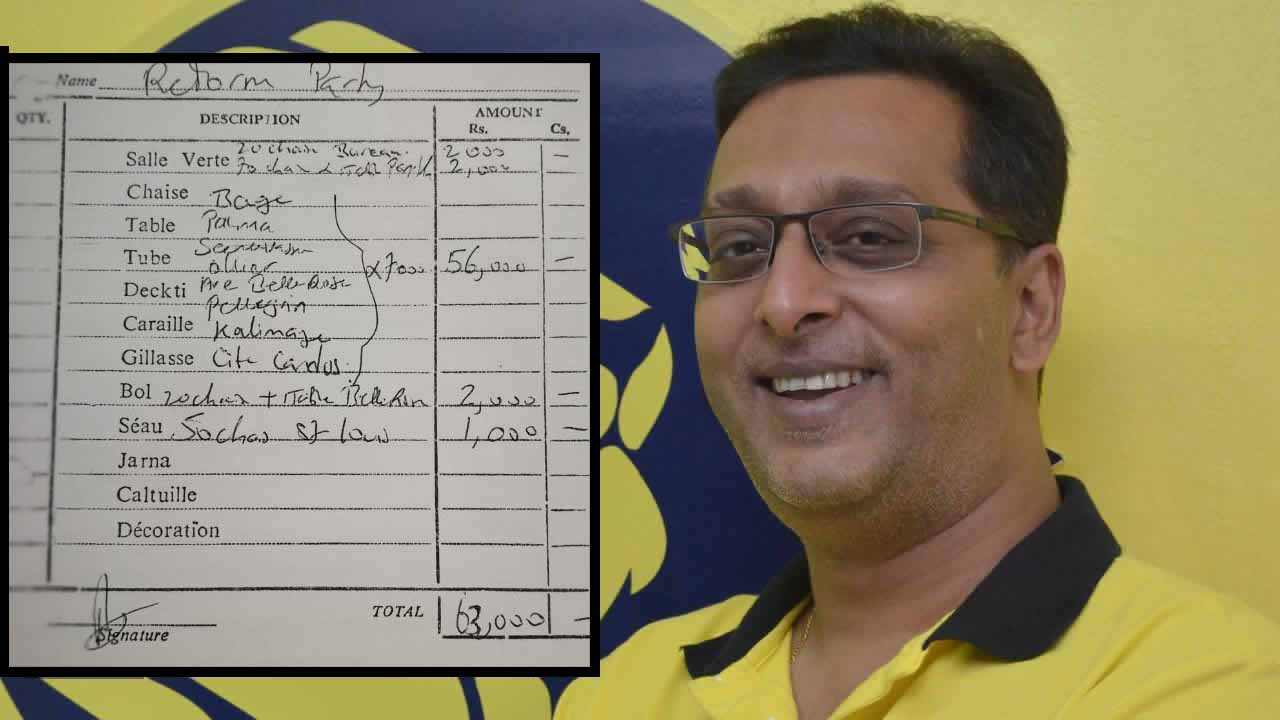 Name Reform Party
QTY. DESCRIPTION AMOUNT
Rs. Cs,
Salle Verte 20 chair Bureau 2,000 —
70 chair & Table 2,000
Chaise
Table Palma
Tube x7000 56,000 —
Deckti Ave Belle Rose
Pellegrin
Caraille Kalimaye
Gillasse Cite
Bol 20 chair + Table Belle Rose 2,000 —
Séau 50 chair St Louis 1,000 —
Jarna
Caltuille
Décoration
TOTAL 63,000 —
Signature